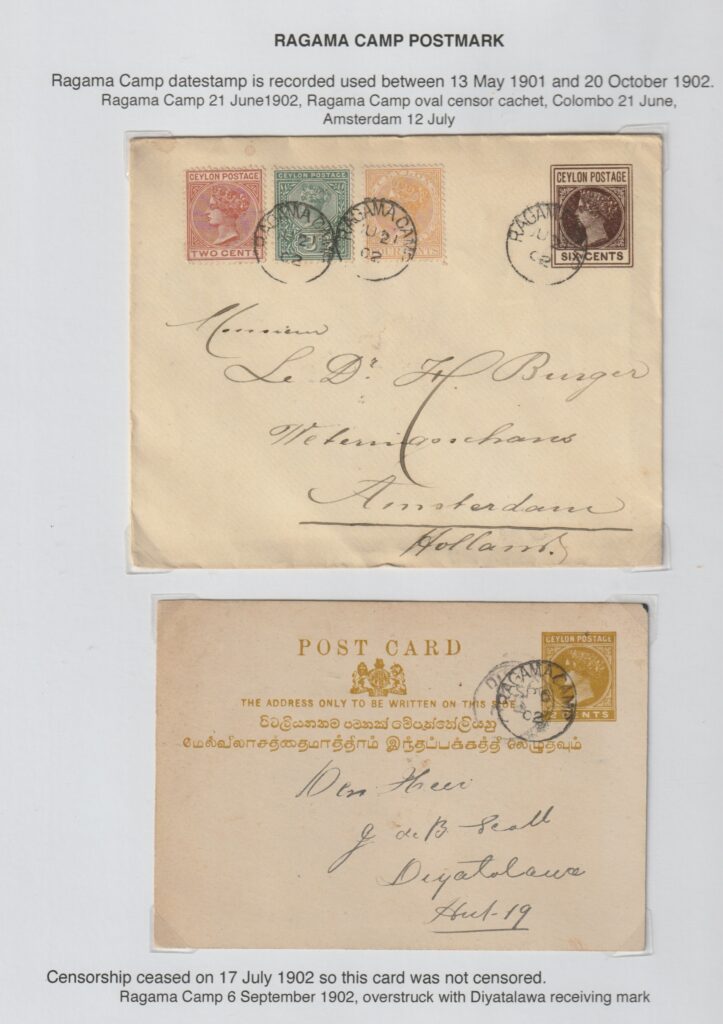 RAGAMA CAMP POSTMARK
Ragama Camp datestamp is recorded used between 13 May 1901 and 20 October 1902.
Ragama Camp 21 June1902, Ragama Camp oval censor cachet, Colombo 21 June,
Amsterdam 12 July
CEYLON POSTAGE
TWO CENTS
CEYLON POSTAGE
CEYLON POSTAGE
SIX CENTS
RAGAMA CAMP
JU 21
02
RAGAMA CAMP
JU 21
02
RAGAMA
JU
02
Monsieur
Le Dr. H. Burger
Weteringschans
Amsterdam
Holland.
POST CARD
CEYLON POSTAGE
2 CENTS
RAGAMA CAMP
02
THE ADDRESS ONLY TO BE WRITTEN ON THIS SIDE
மேல்விலாசத்தைமாத்திரம் இந்தப்பக்கத்தி லெழுதவும்
Den Heer
J de B Scott
Diyatolawa
Hut-19
Censorship ceased on 17 July 1902 so this card was not censored.
Ragama Camp 6 September 1902, overstruck with Diyatalawa receiving mark